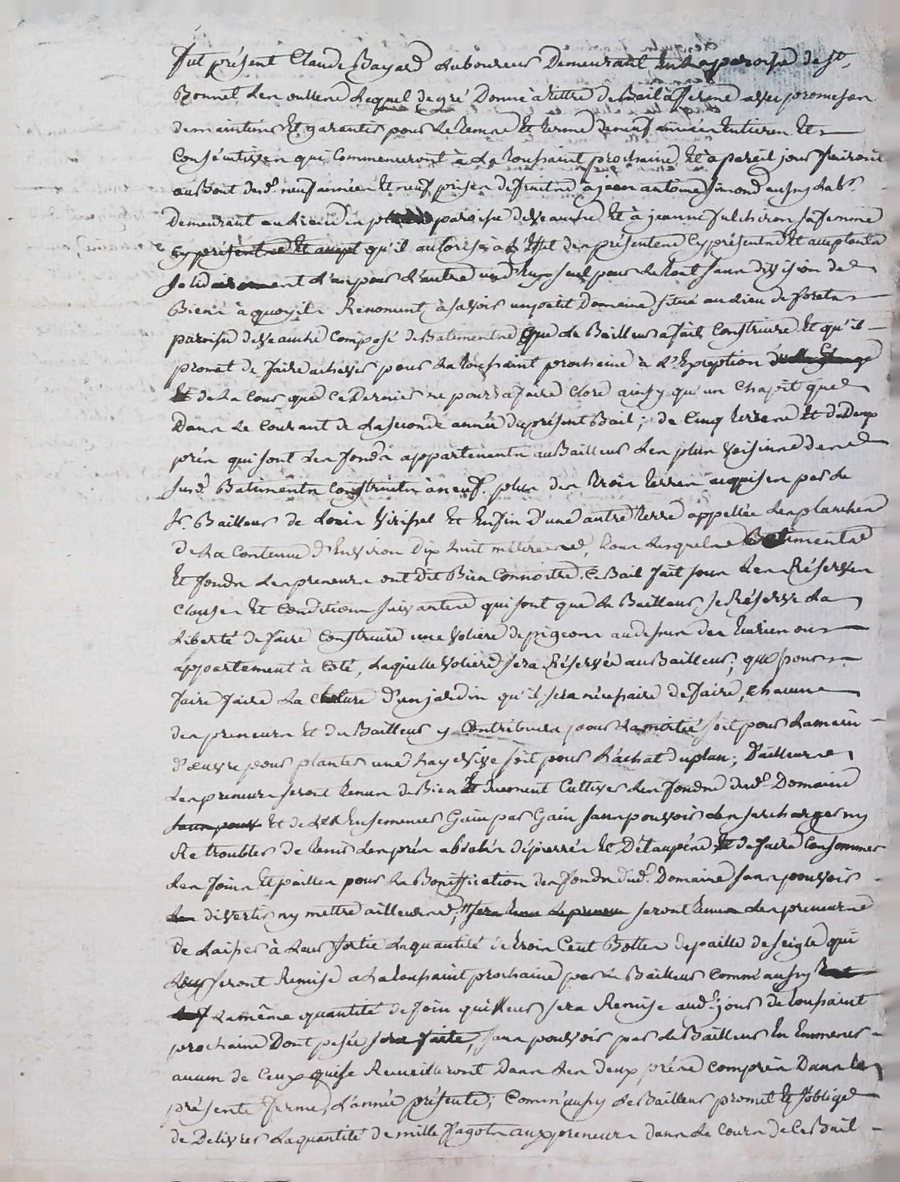 fut présent Claude Bayard Laboureur Demeurant en la paroise de St.
Bonnet Len oullene Lequel de gré Donne à tittre de Bail à ferme avec promesse
de maintenir Et garantir pour Le Tems Et terme de neuf années Entieres Et
Consécutives qui Commenceront à La toussaint prochaine Et à pareil jour finiront
au Bout desd. neuf années Et neuf prises de fruits à jean antoine simond aussy Lab.r
Demeurant au Lieu paroise de veauche Et à jeanne fulchiron sa femme
Cy présente Et accept qu'il autorise à L'Effet des présentes Cy présents Et acceptants
solidairement L'un pour L'autre un d'Eux seul pour Le tout sans division de
Biens à quoy ils Renoncent, à savoir un petit Domaine situé au Lieu de forets
paroise de veauche Composé de Batiments que Le Bailleur a fait Construire Et qu'il
promet de faire achever pour La toussaint prochaine à L'Exception
Et de La Cour que Ce Dernier ne pourra faire Clore ainsy qu'un Chapit que
Dans Le Courant de La seconde année du présent Bail; de Cinq terres Et de Deux
prés qui sont Les fonds appartenants au Bailleur Les plus voisins des
susd. Batiments Construits à neuf. plus des trois terres aquises par Le
sr. Bailleur de Louis Et Enfin d'une autre terre appellée Les planches
de La Contenue d'Environ Dix huit metterées, tous Lesquels Batiments
Et fonds Les preneurs ont dit Bien Connoitre. Ce Bail fait sous Les Réserves
Clauses Et Conditions suivantes qui sont que Le Bailleur se Réserve La
Liberté de faire Construire une voliere de pigeons au dessus des Ecuries ou
appartement à Coté, Laquelle voliere sera Réservée au Bailleur; que pour
faire faire La Cloture d'un jardin qu'il sera nécessaire de faire, chacun
des preneurs et du Bailleur y Contribuera pour La moitié soit pour La main
d'œuvre pour planter une haye vive soit pour L'achat du plan; D'ailleurs
Les preneurs seront tenus de Bien Et duement Cultiver Les fonds dud. Domaine
sans pouv Et de Les Ensemencer Gain par Gain sans pouvoir Les surcharger ny
Retroubler de tenir Les prés abrobés dépierrés Et Détaupés, Et de faire Consommer
Les foins Et pailles pour La Bonification des fonds dud. Domaine sans pouvoir
Les divertir ny mettre ailleurs, sera tenu Le preneur seront tenus Les preneurs
de Laisser à Leur sortie La quantité de trois Cent Bottes de paille de seigle qui
Leur seront Remise à La toussaint prochaine par Le Bailleur Comm'aussy
La même quantité de foin qui Leur sera Remise aud. jour de toussaint
prochaine Dont pesée sera faite, sans pouvoir par Le Bailleur En Emmener
aucun de Ceux qui se Recueilleront Dans Les deux prés Compris Dans La
présente ferme, L'année présente; Comm'aussy Le Bailleur promet Et s'oblige
de Délivrer La quantité de mille fagots aux preneurs dans Le Cours de Ce Bail